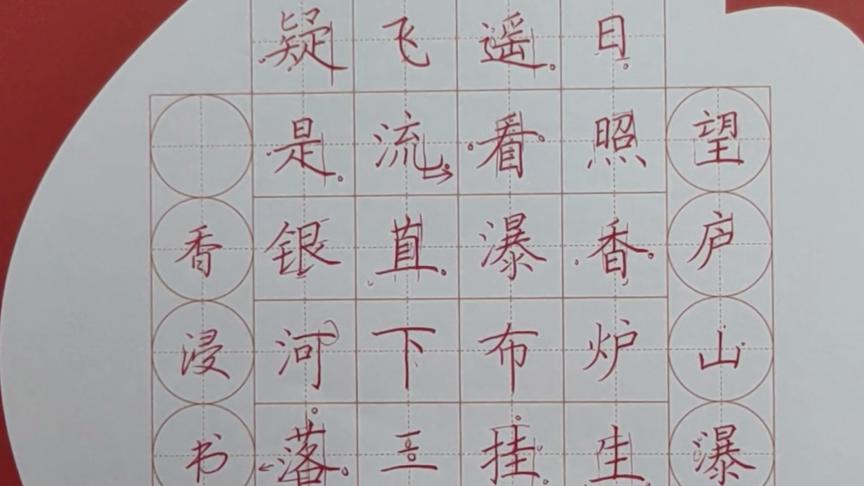 望庐山瀑
日照香炉生
遥看瀑布挂
飞流直下三
疑是银河落
香浸书